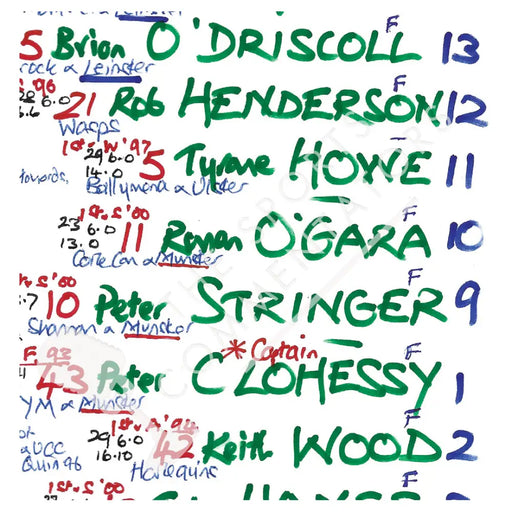 5 Brian O'DRISCOLL F 13
rock & Leinster
'96
6.0 21 Rob HENDERSON F 12
Wasps
1st.W'97
29 6.0 5 Tyrone HOWE 11
14.0
Ballymena & Ulster
1st.S'00
23 6.0 11 Ronan O'GARA F 10
13.0
Cork Con & Munster
.S'00
.7 10 Peter STRINGER F 9
Shannon & Munster
*Captain
F 93
43 Peter CLOHESSY F 1
YM & Munster
1st.A'94
29 6.0 42 Keith WOOD F 2
16.10
& UCC
Quin 96
Harlequins
1st.S'00
F
THE SPORTS COMMENTATORS